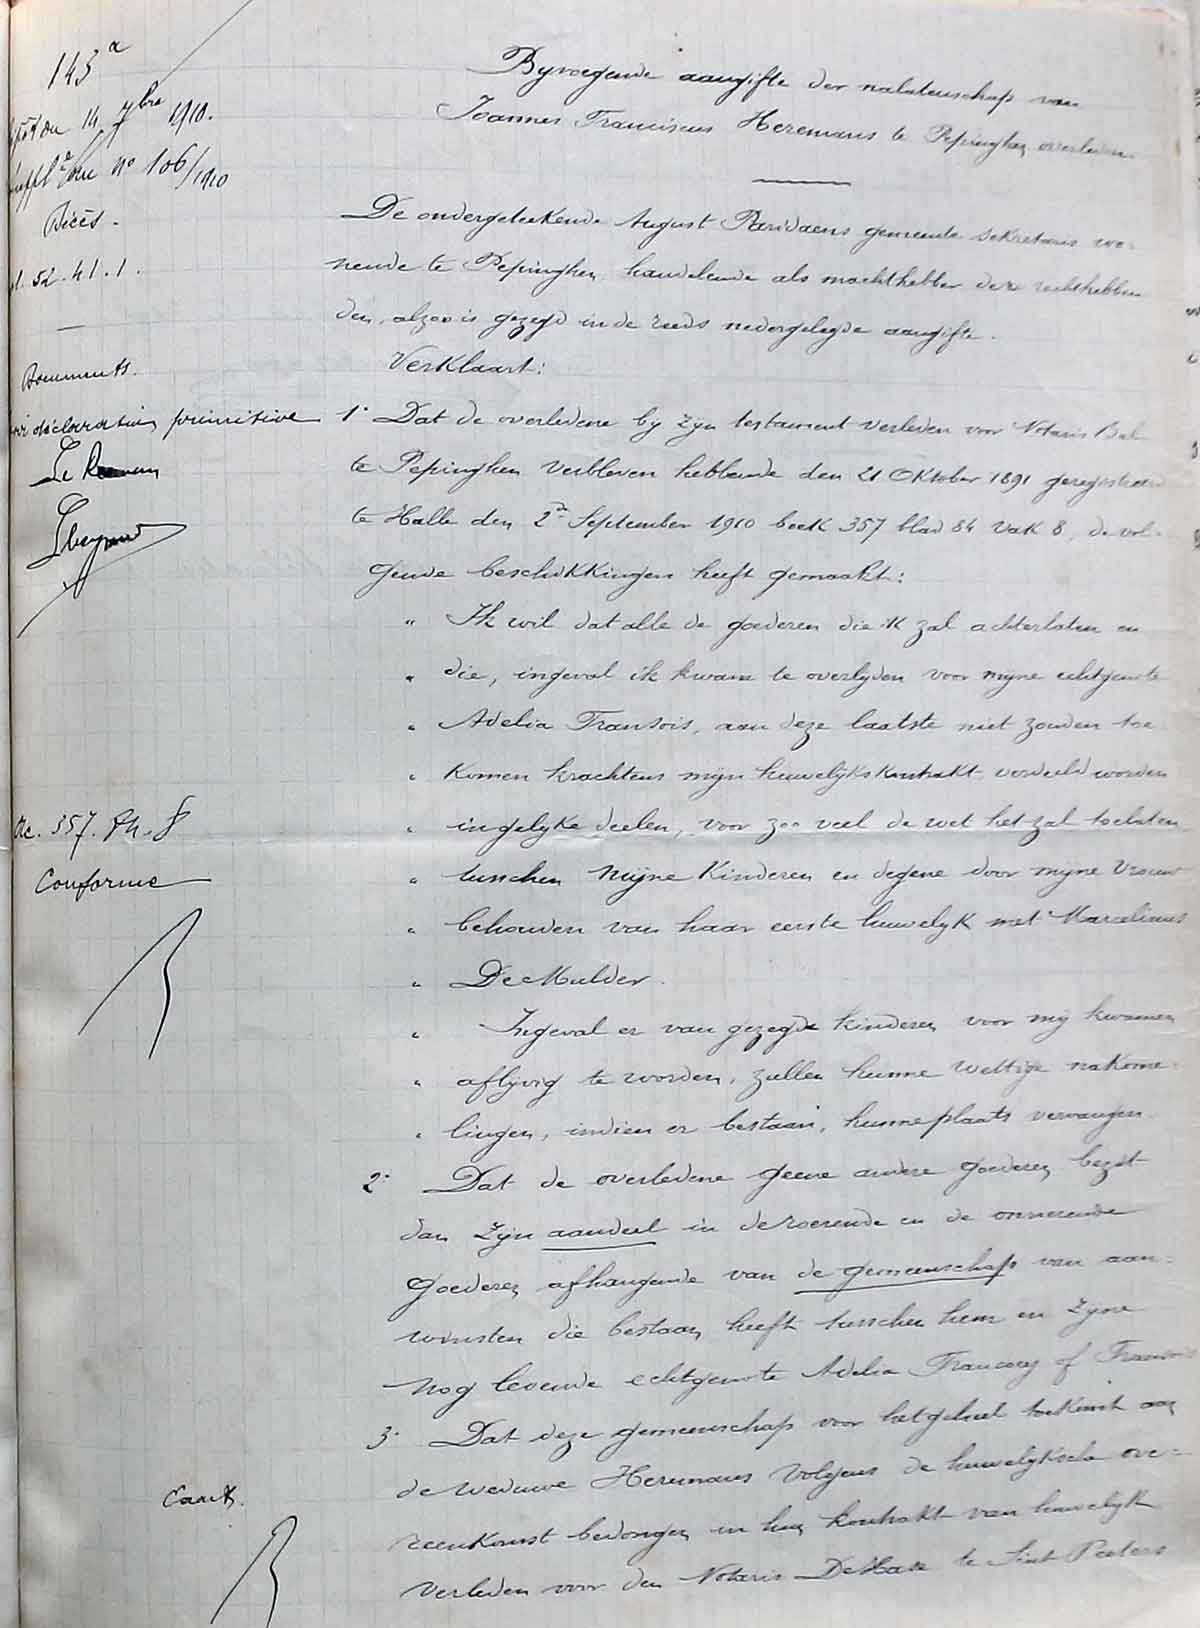 143a
14 7bre 1910.
no 106/1910
Décès.
52.41.1.
Documents.
déclaration primitive
Le Receveur
Ac. 357. fn. 8
Conforme
Exact.
Byvoegende aangifte der nalatenschap van
Joannes Franciscus Heremans te Pepinghen overleden.
De ondergeteekende August Paridaens gemeente sekretaris wo-
nende te Pepinghen, handelende als machthebber der rechthebben
den, alzoo is gezegd in de reeds nedergelegde aangifte.
Verklaart:
1° Dat de overledene by zyn testament verleden voor Notaris Bal
te Pepinghen verbleven hebbende den 21 Oktober 1891 geregistreerd
te Halle den 2n September 1910 boek 357 blad 84 vak 8, de vol-
gende beschikkingen heeft gemaakt:
" Ik wil dat alle de goederen die ik zal achterlaten en
" die, ingeval ik kwam te overlyden voor mijne echtgenote
" Adelia Fransois, aan deze laatste niet zouden toe
" komen krachtens mijn huwelijkskontrakt verdeeld worden
" in gelyke deelen, voor zoo veel de wet het zal toelaten
" tusschen mijne kinderen en degene door mijne Vrouw
" behouden van haar eerste huwelyk met Marcelinus
" De Mulder.
" Ingeval er van gezegde kinderen voor mij kwamen
" aflijvig te worden, zullen hunne wettige nakome-
" lingen, indien er bestaan, hunne plaats vervangen.
2° Dat de overledene geene andere goederen bezit
dan zyn aandeel in de roerende en de onroerende
goederen afhangende van de gemeenschap van aan-
winsten die bestaan heeft tusschen hem en zyne
nog levende echtgenote Adelia Francoys of Fransois
3° Dat deze gemeenschap voor het geheel toekomt aan
de weduwe Heremans volgens de huwelyksche ove-
reenkomst bedongen in hun kontrakt van huwelyk
verleden voor den Notaris DeHase te Sint Peeters